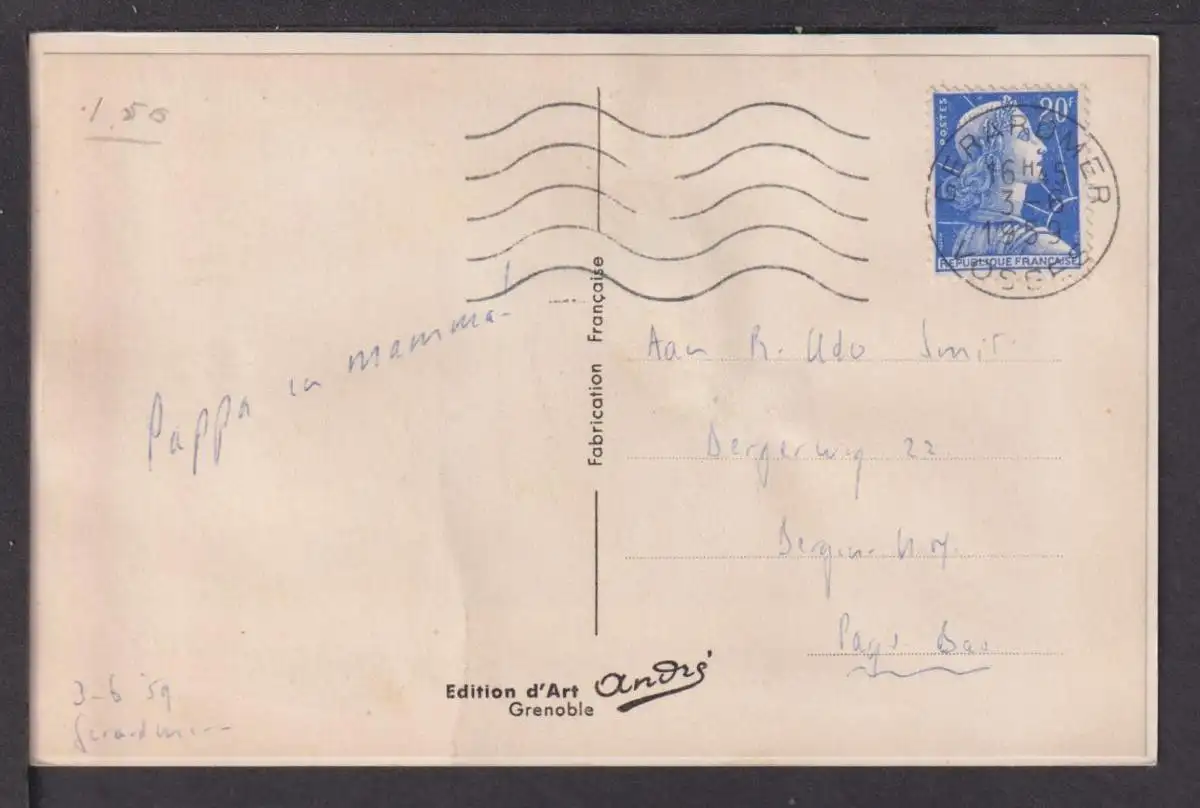 1.50
POSTES
20F
GERARDMER
16H45
3 -6
1959
VOSGES
REPUBLIQUE FRANÇAISE
Pappa en mamma!
Fabrication Française
Aan R. Udo Smit.
Bergerweg 22
Bergen. N.H.
Pays Bas
3-6 '59
Gerardmer
Edition d'Art André
Grenoble